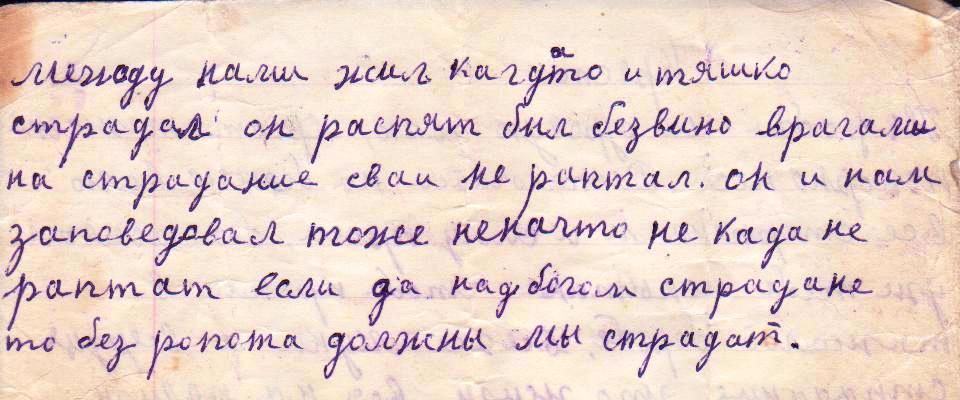 между нами жил кагдато и тяшко
страдал он распят бил безвино врагами
на страдание сваи не раптал. он и нам
заповедовал тоже неначто не када не
раптат если да над богом страдане
то без ропота должны мы страдат.